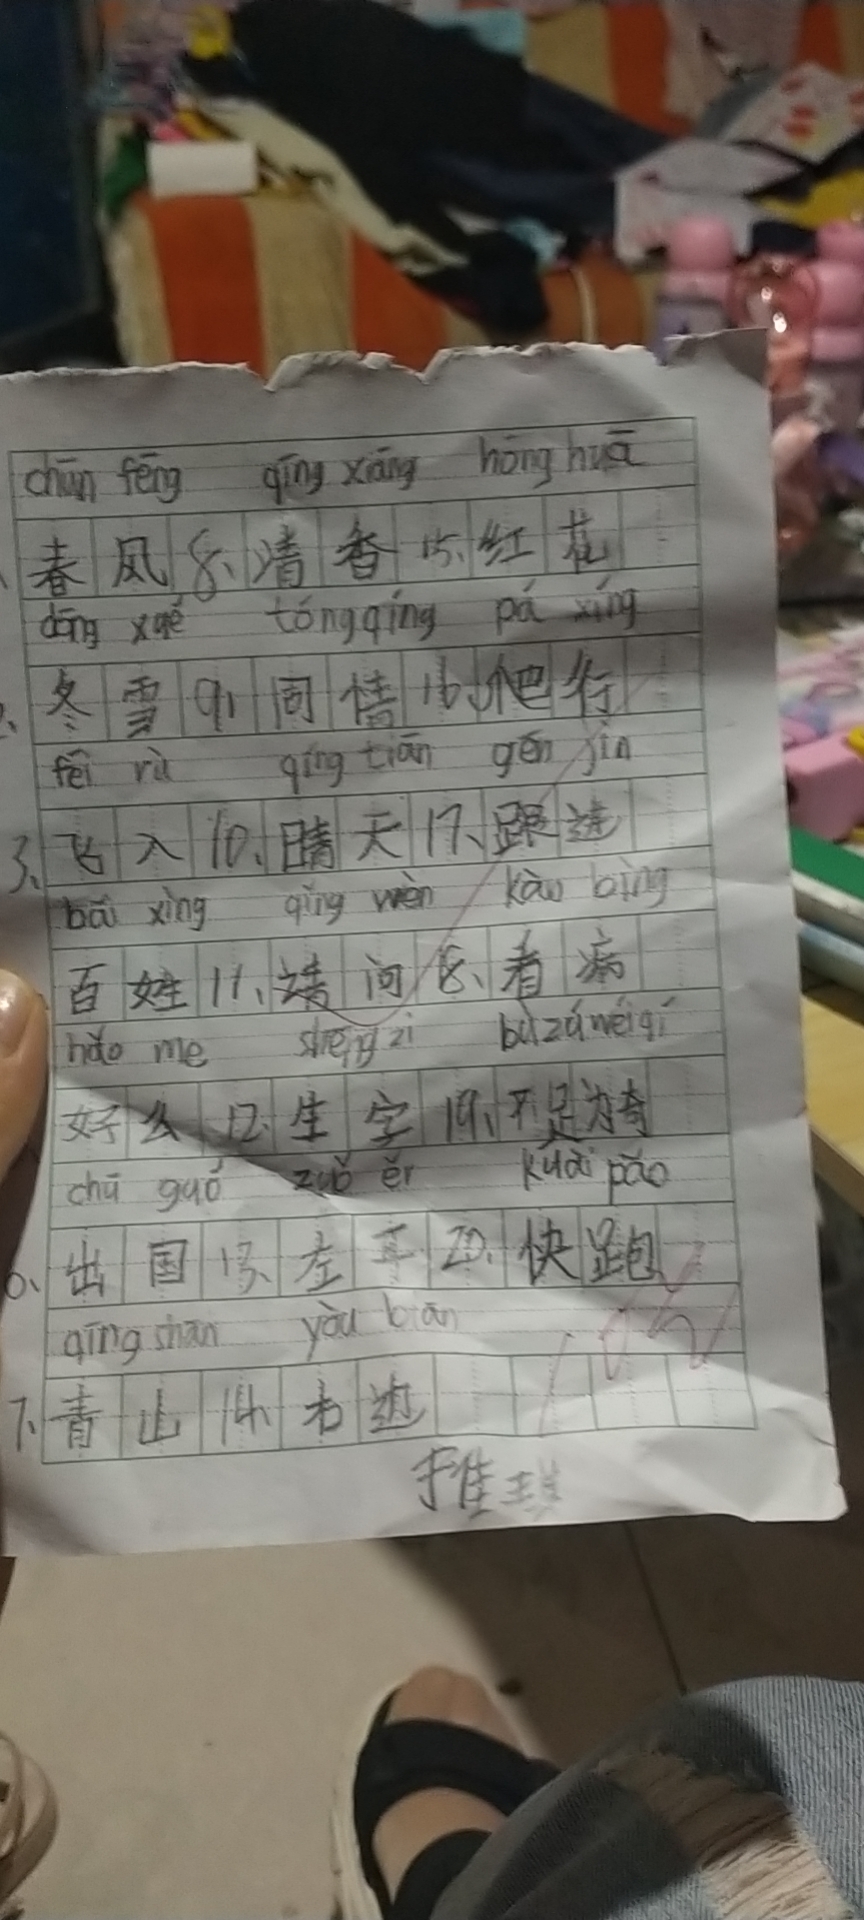 chūn fēng qīng xiāng hōng huā
春 风 8、清 香 15、红 花
dōng xuě tóng qíng pá xíng
冬 雪 9、同 情 16、爬 行
fēi rù qíng tiān gēn jìn
3、飞 入 10、晴 天 17、跟 进
bǎi xìng qǐng wèn kàn bìng
百 姓 11、请 问 18、看 病
hǎo me shēng zì bù zú wéi qí
好 么 12、生 字 19、不足为奇
chū guó zuǒ kuài pǎo
6、出 国 13、左 20、快 跑
qīng shān yòu biān
7、青 山 14、右 边